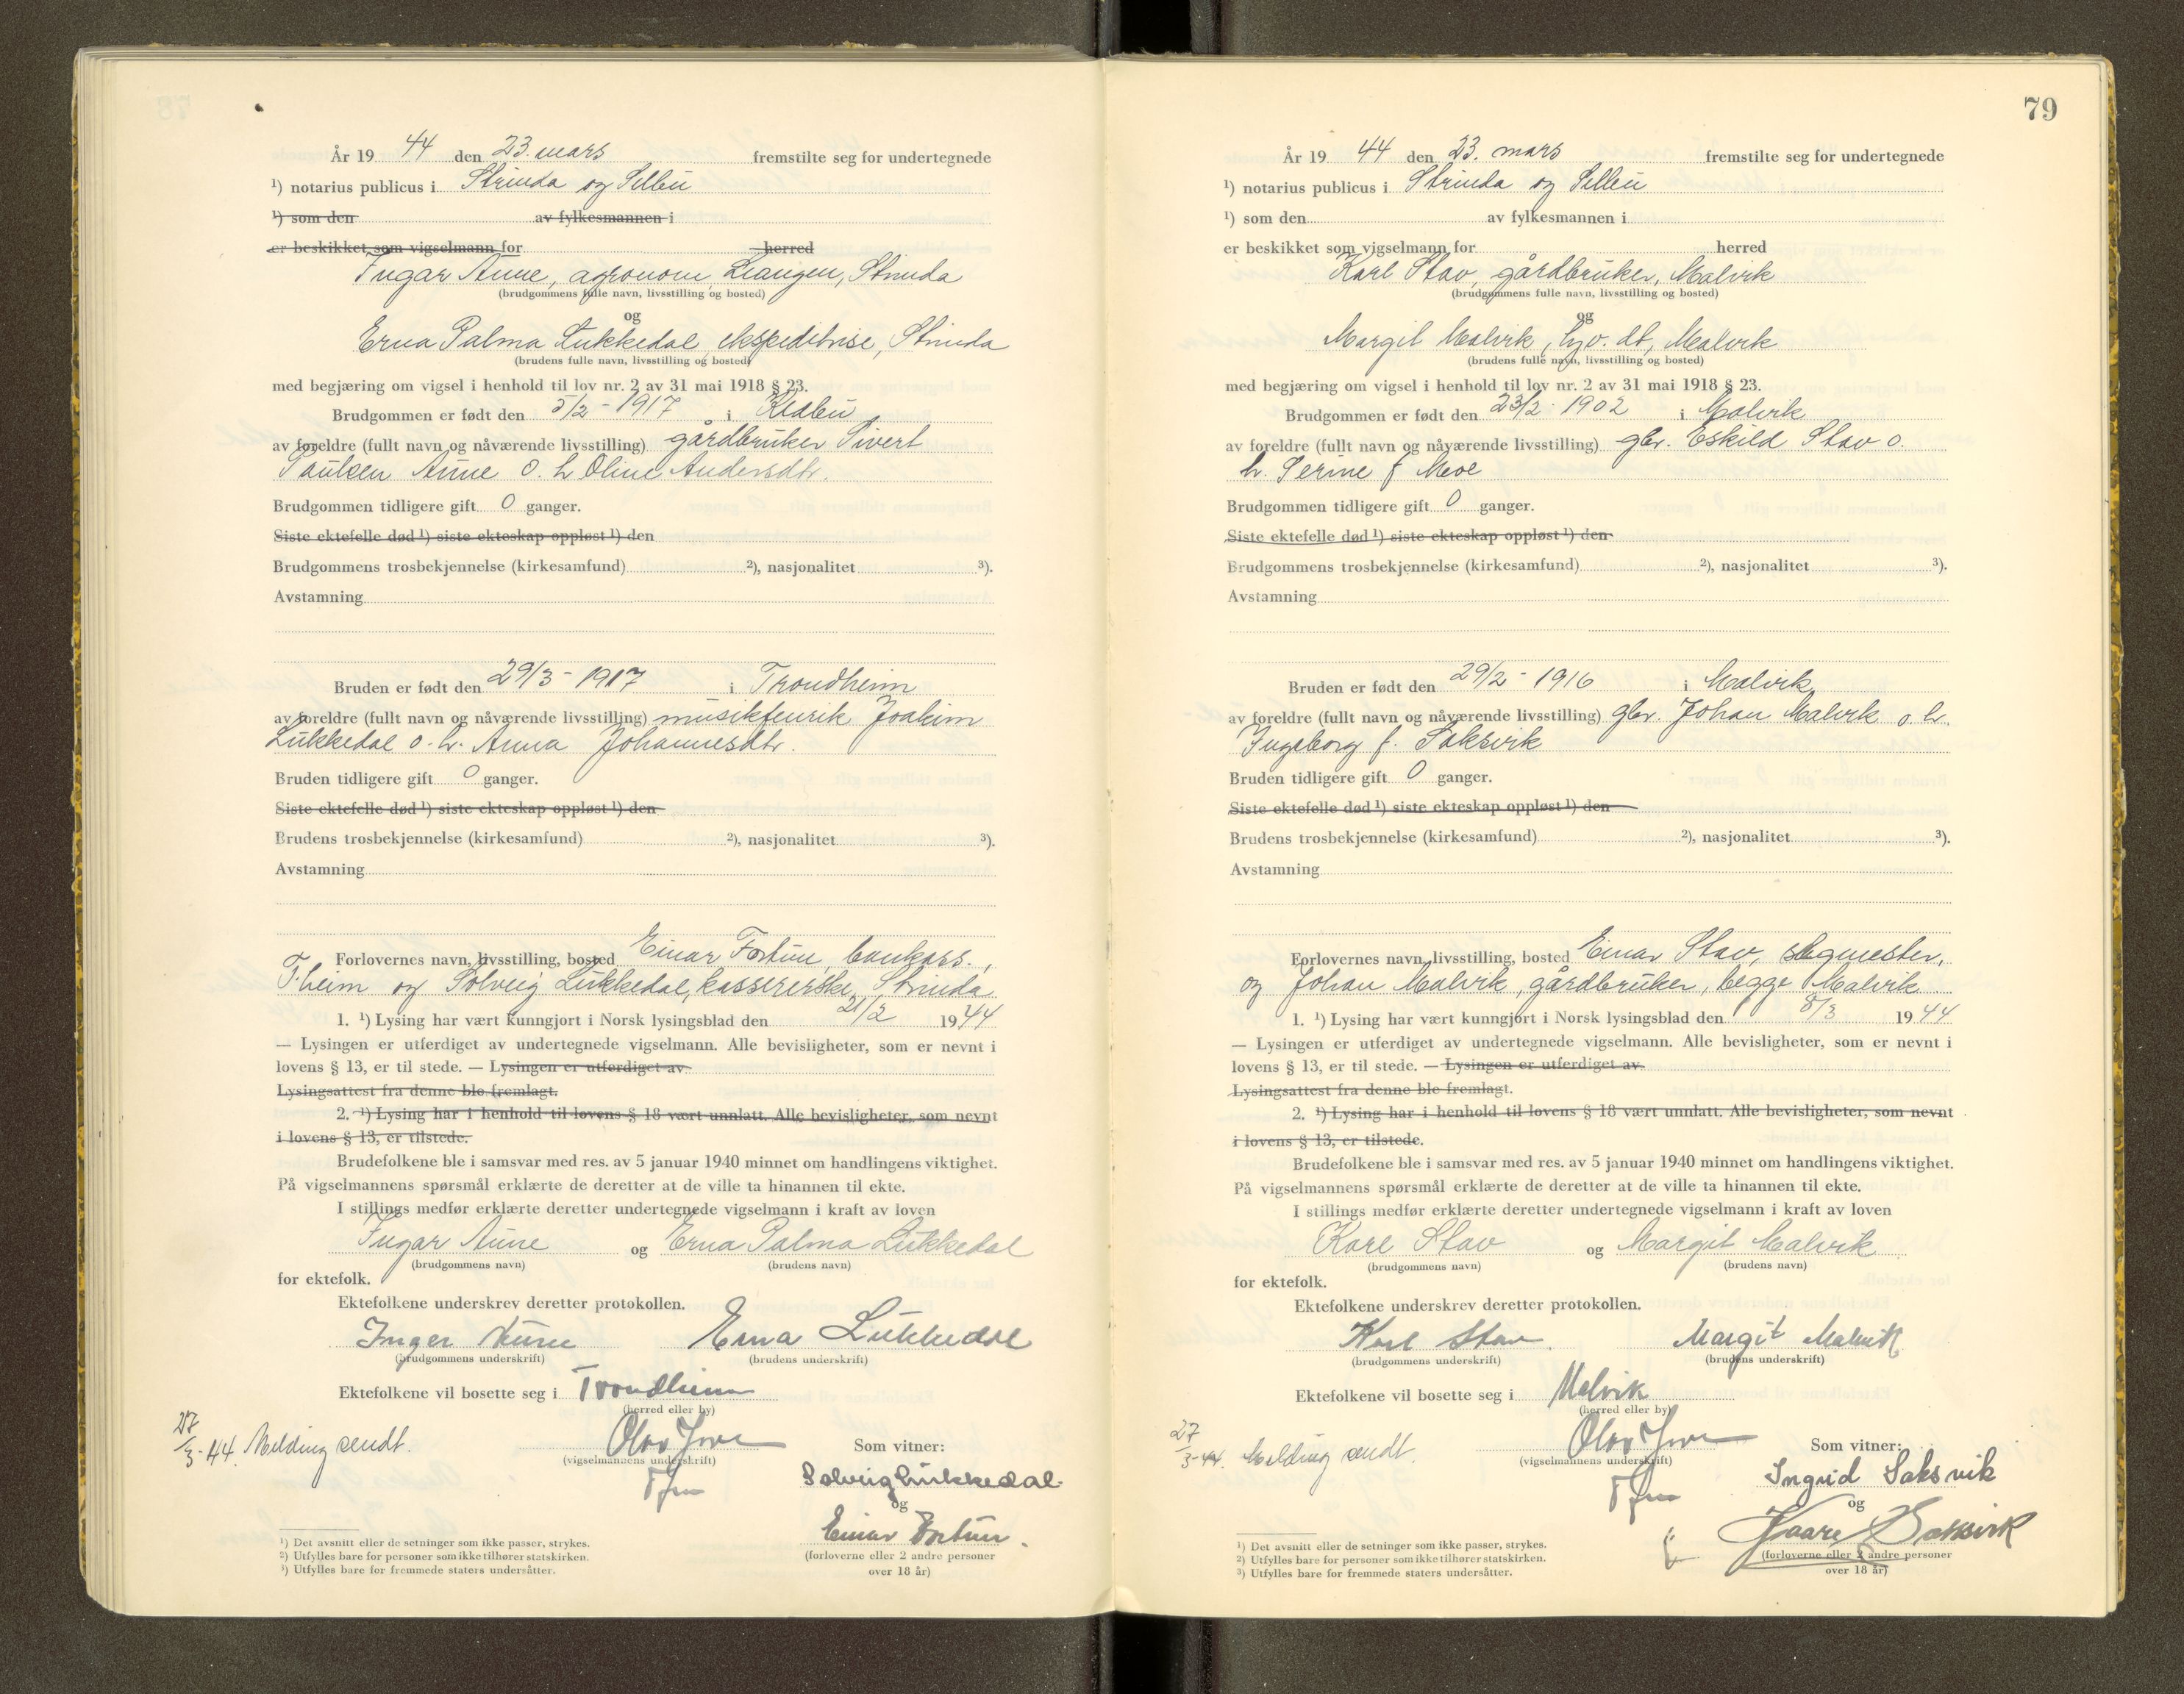 År 19 44 den 23. mars fremstilte seg for undertegnede
¹) notarius publicus i Strinda og Selbu
¹) som den av fylkesmannen i
er beskikket som vigselmann for herred
Ingar Aune, agronom, Leangen, Strinda
(brudgommens fulle navn, livsstilling og bosted)
og
Erna Palma Lukkedal, ekspeditrise, Strinda
(brudens fulle navn, livsstilling og bosted)
med begjæring om vigsel i henhold til lov nr. 2 av 31 mai 1918 § 23.
Brudgommen er født den 5/2 - 1917 i Klæbu
av foreldre (fullt navn og nåværende livsstilling) gårdbruker Sivert
Paulsen Aune o. h. Oline Andersdtr.
Brudgommen tidligere gift 0 ganger.
Siste ektefelle død ¹) siste ekteskap oppløst ¹) den
Brudgommens trosbekjennelse (kirkesamfund) ²), nasjonalitet ³).
Avstamning
Bruden er født den 29/3 - 1917 i Trondheim
av foreldre (fullt navn og nåværende livsstilling) musikfenrik Joakim
Lukkedal o. h. Anna Johannesdtr.
Bruden tidligere gift 0 ganger.
Siste ektefelle død ¹) siste ekteskap oppløst ¹) den
Brudens trosbekjennelse (kirkesamfund) ²), nasjonalitet ³).
Avstamning
Forlovernes navn, livsstilling, bosted Einar Fortun, bankass.,
T.heim og Solveig Lukkedal, kassererske, Strinda
1. ¹) Lysing har vært kunngjort i Norsk lysingsblad den 21/2 1944
— Lysingen er utferdiget av undertegnede vigselmann. Alle bevisligheter, som er nevnt i
lovens § 13, er til stede. — Lysingen er utferdiget av
Lysingsattest fra denne ble fremlagt.
2. ¹) Lysing har i henhold til lovens § 18 vært unnlatt. Alle bevisligheter, som nevnt
i lovens § 13, er tilstede.
Brudefolkene ble i samsvar med res. av 5 januar 1940 minnet om handlingens viktighet.
På vigselmannens spørsmål erklærte de deretter at de ville ta hinannen til ekte.
I stillings medfør erklærte deretter undertegnede vigselmann i kraft av loven
Ingar Aune og Erna Palma Lukkedal
(brudgommens navn) (brudens navn)
for ektefolk.
Ektefolkene underskrev deretter protokollen.
Ingar Aune Erna Lukkedal
(brudgommens underskrift) (brudens underskrift)
Ektefolkene vil bosette seg i Trondheim
(herred eller by)
27/3-44. Melding sendt.
(vigselmannens underskrift) Som vitner:
Solveig Lukkedal
og
Einar Fortun.
(forloverne eller 2 andre personer
over 18 år)
¹) Det avsnitt eller de setninger som ikke passer, strykes.
²) Utfylles bare for personer som ikke tilhører statskirken.
³) Utfylles bare for fremmede staters undersåtter.
79
År 19 44 den 23. mars fremstilte seg for undertegnede
¹) notarius publicus i Strinda og Selbu
¹) som den av fylkesmannen i
er beskikket som vigselmann for herred
Karl Stav, gårdbruker, Malvik
(brudgommens fulle navn, livsstilling og bosted)
og
Margit Malvik, hjv. dt, Malvik
(brudens fulle navn, livsstilling og bosted)
med begjæring om vigsel i henhold til lov nr. 2 av 31 mai 1918 § 23.
Brudgommen er født den 23/2 - 1902 i Malvik
av foreldre (fullt navn og nåværende livsstilling) gbr. Eskild Stav o.
h. Serine f. Moe
Brudgommen tidligere gift 0 ganger.
Siste ektefelle død ¹) siste ekteskap oppløst ¹) den
Brudgommens trosbekjennelse (kirkesamfund) ²), nasjonalitet ³).
Avstamning
Bruden er født den 29/2 - 1916 i Malvik
av foreldre (fullt navn og nåværende livsstilling) gbr. Johan Malvik o. h.
Ingeborg f. Saksvik
Bruden tidligere gift 0 ganger.
Siste ektefelle død ¹) siste ekteskap oppløst ¹) den
Brudens trosbekjennelse (kirkesamfund) ²), nasjonalitet ³).
Avstamning
Forlovernes navn, livsstilling, bosted Einar Stav,
og Johan Malvik, gårdbruker, begge Malvik
1. ¹) Lysing har vært kunngjort i Norsk lysingsblad den 8/3 1944
— Lysingen er utferdiget av undertegnede vigselmann. Alle bevisligheter, som er nevnt i
lovens § 13, er til stede. — Lysingen er utferdiget av
Lysingsattest fra denne ble fremlagt.
2. ¹) Lysing har i henhold til lovens § 18 vært unnlatt. Alle bevisligheter, som nevnt
i lovens § 13, er tilstede.
Brudefolkene ble i samsvar med res. av 5 januar 1940 minnet om handlingens viktighet.
På vigselmannens spørsmål erklærte de deretter at de ville ta hinannen til ekte.
I stillings medfør erklærte deretter undertegnede vigselmann i kraft av loven
Karl Stav og Margit Malvik
(brudgommens navn) (brudens navn)
for ektefolk.
Ektefolkene underskrev deretter protokollen.
Karl Stav Margit Malvik
(brudgommens underskrift) (brudens underskrift)
Ektefolkene vil bosette seg i Malvik
(herred eller by)
27/3-44. Melding sendt.
(vigselmannens underskrift) Som vitner:
Ingrid Saksvik
og
Kaare Saksvik
(forloverne eller 2 andre personer
over 18 år)
¹) Det avsnitt eller de setninger som ikke passer, strykes.
²) Utfylles bare for personer som ikke tilhører statskirken.
³) Utfylles bare for fremmede staters undersåtter.